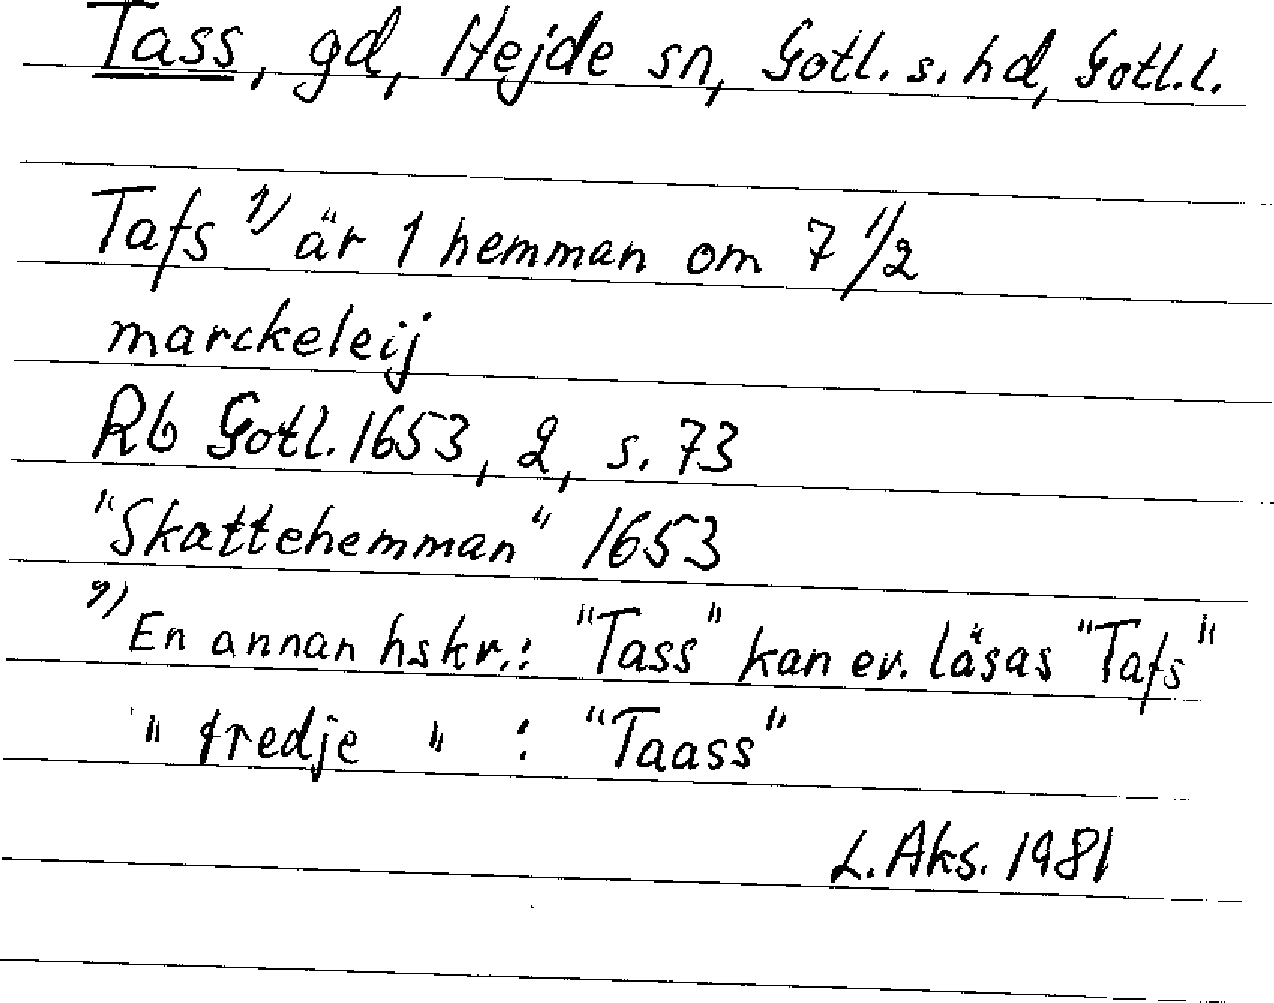 Tass, gd, Hejde sn, Gotl. s. hd, Gotl. l.
Tafs 1) är 1 hemman om 7 1/2
marckeleij
Rb Gotl. 1653, 2, s. 73
"Skattehemman" 1653
1) En annan hskr.: "Tass" kan ev. läsas "Tafs"
" tredje " : "Taass"
L. Aks. 1981